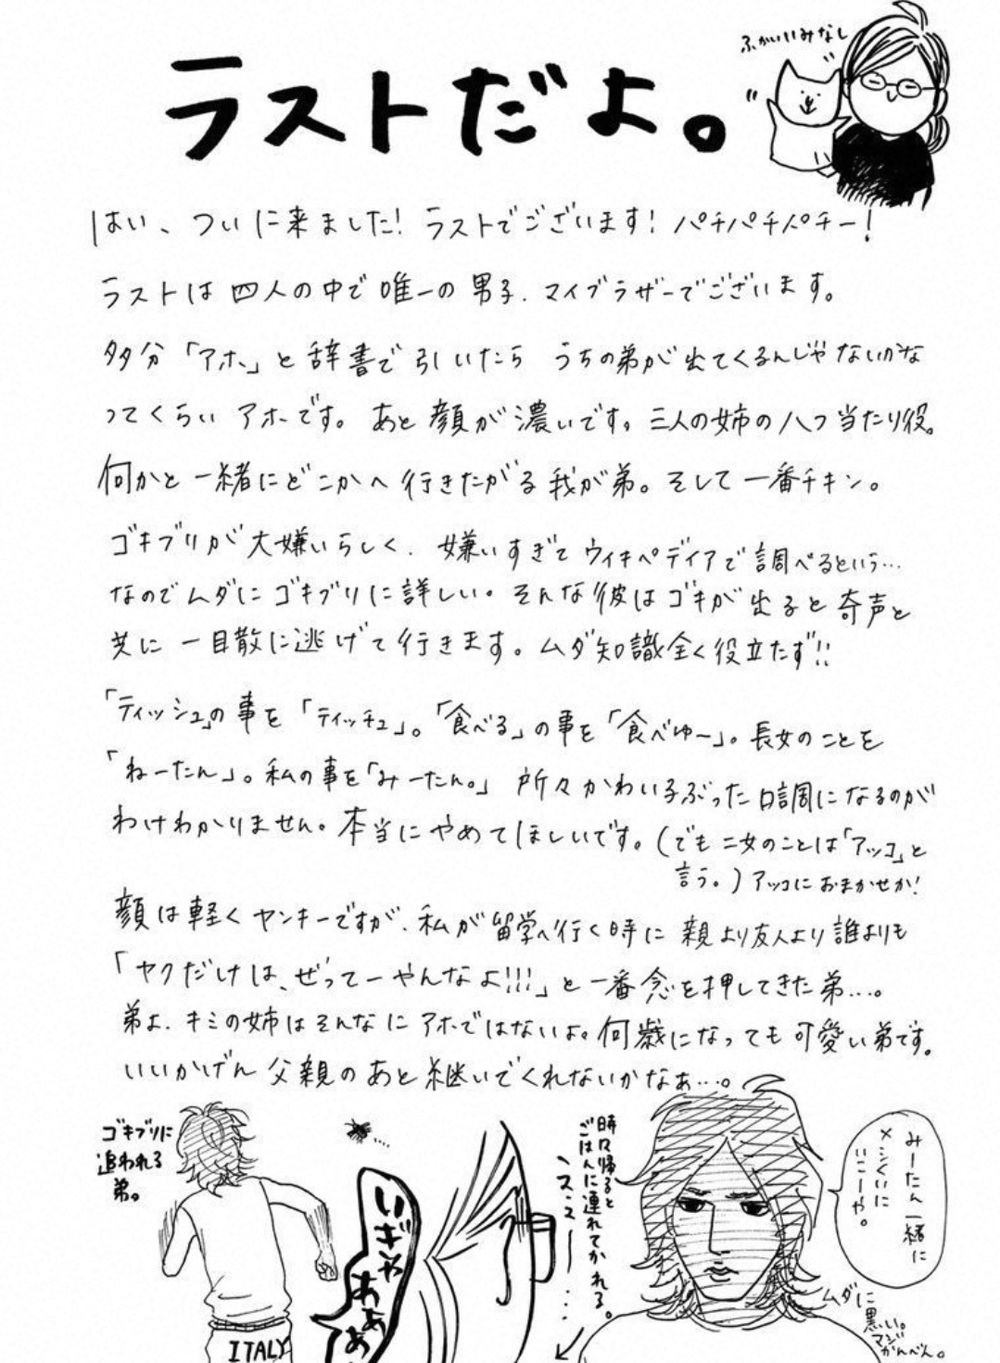 ラストだよ。
ふかいいみなし
はい、ついに来ました!ラストでございます!パチパチパチー!
ラストは四人の中で唯一の男子、マイブラザーでございます。
多分「アホ」と辞書で引いたら うちの弟が出てくるんじゃないかな
ってくらいアホです。あと顔が濃いです。三人の姉の八つ当たり役。
何かと一緒にどこかへ行きたがる我が弟。そして一番チキン。
ゴキブリが大嫌いらしく、嫌いすぎてウィキペディアで調べるという…
なのでムダにゴキブリに詳しい。そんな彼はゴキが出ると奇声と
共に一目散に逃げて行きます。ムダ知識全く役立たず!!
「ティッシュ」の事を「ティッチュ」。「食べる」の事を「食べゆ〜」。長女のことを
「ねーたん」。私の事を「みーたん。」所々かわい子ぶった口調になるのが
わけわかりません。本当にやめてほしいです。(でも二女のことは「アッコ」と
言う。)アッコにおまかせか!
顔は軽くヤンキーですが、私が留学へ行く時に親より友人より誰よりも
「ヤクだけは、ぜってーやんなよ!!!」と一番念を押してきた弟…。
弟よ、キミの姉はそんなにアホではないよ。何歳になっても可愛い弟です。
いいかげん父親のあと継いでくれないかなぁ…。
ゴキブリに
追われる
弟。
いぎゃあああ
ITALY
時々帰ると
ごはんに連れてかれる。
みーたん一緒に
メシくいに
いこーや。
ムダに
黒い。
マジ
かんべん。